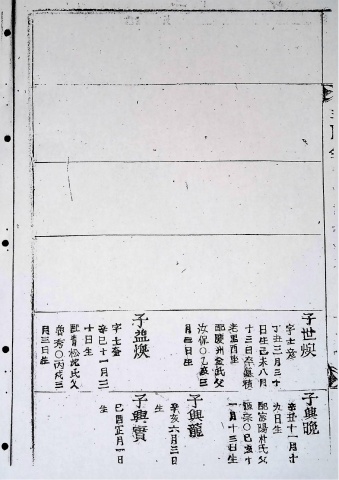 子世煥
字士奎
丁丑三月三十
日生己未八月
十三日卒墓積
老里酉坐
配慶州金氏父
汝保〇乙亥三
月四日生
子益煥
字士奎
辛巳十一月二
十日生
配青松沈氏父
魯秀〇丙戌三
月三日生
子興晩
辛丑十一月十
九日生
配富陽朴氏父
〇己亥十
一月十三日生
子興龍
辛亥六月三日
生
子興實
己酉正月一日
生